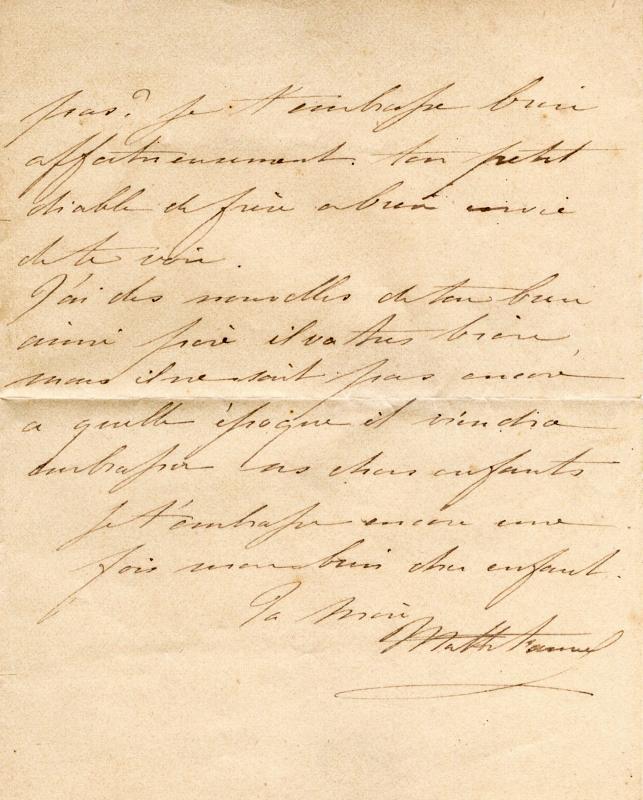 pas? je t'embrasse bien
affectueusement. ton petit
diable de frère a bien envie
de te voir.
J'ai des nouvelles de ton bien
aimé père il va très bien,
mais il ne sait pas encore
a quelle époque il viendra
embrasser ses chers enfants
je t'embrasse encore une
fois mon bien cher enfant.
Ta Mère